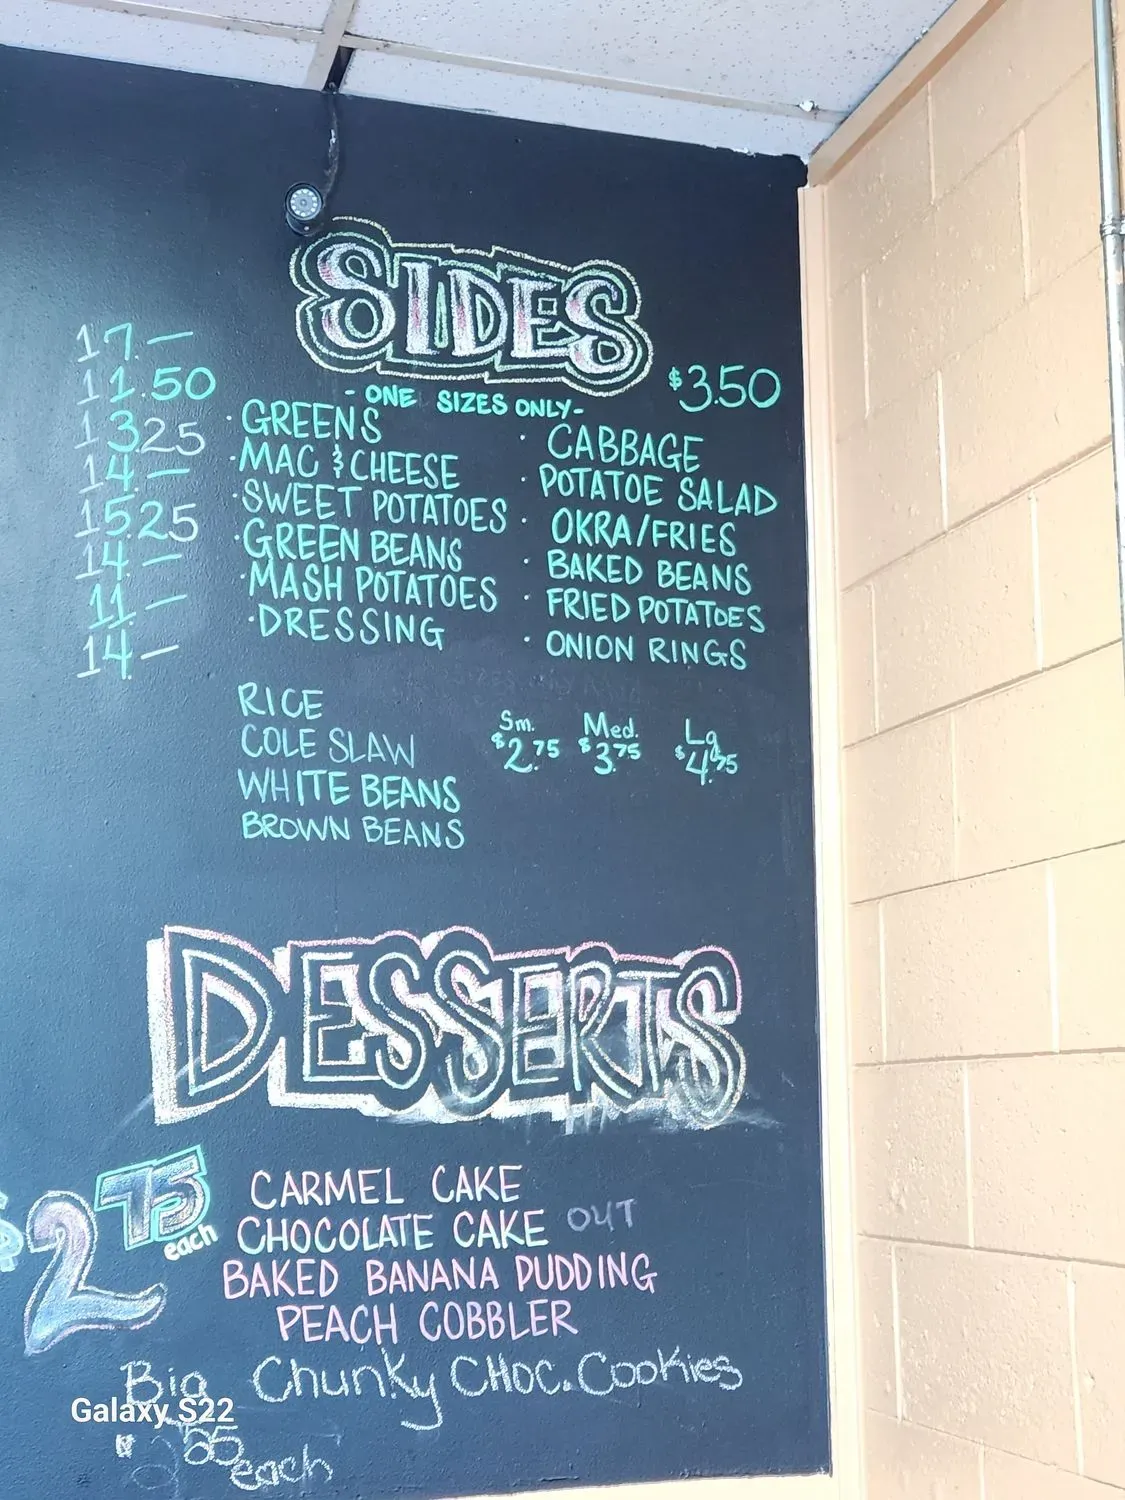 SIDES
$3.50
- ONE SIZES ONLY -
17.—
11.50
13.25
14.—
15.25
14.—
11.—
14.—
· GREENS
· MAC & CHEESE
· SWEET POTATOES
· GREEN BEANS
· MASH POTATOES
· DRESSING
· CABBAGE
· POTATOE SALAD
· OKRA/FRIES
· BAKED BEANS
· FRIED POTATOES
· ONION RINGS
RICE
COLE SLAW
WHITE BEANS
BROWN BEANS
Sm. Med. Lg
$2.75 $3.75 $4.95
DESSERTS
$2 75 each
CARMEL CAKE
CHOCOLATE CAKE OUT
BAKED BANANA PUDDING
PEACH COBBLER
Big Chunky CHOC. Cookies
each
Galaxy S22